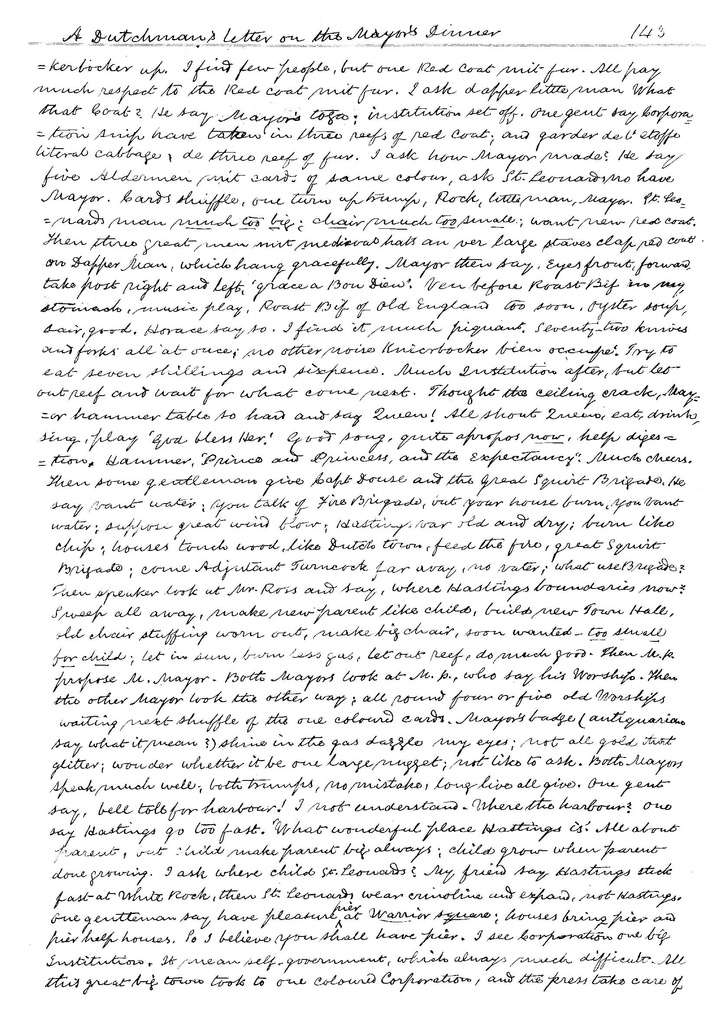 A Dutchman's letter on the Mayor's Dinner 143
=kerbocker up. I find few people, but one Red Coat mit fur. All pay
much respect to the Red coat mit fur. I ask dapper little man What
that Coat? He say Mayor's toga; institution set off. One gent say Corpora
=tion snip have taken in three reefs of red coat; and garder de l'etoffe
literal cabbage; de three reef of fur. I ask how Mayor made? He say
five Aldermen mit cards of same colour, ask St. Leonards, no have
Mayor. Cards shuffle, one turn up trump, Rock, little man, Mayor. St. Leo=
=nards man much too big; chair much too small; want new red coat.
Then three great men mit medieval hats an ver large staves clap red coat
on Dapper Man, which hang gracefully. Mayor then say, Eyes front, forward,
take post right and left, 'grace a Bon Dieu'. Ven before Roast Bif in my
stomach, music play, Roast Bif of Old England too soon. Oyster soup,
sair, good. Horace say so. I find it much piquant. Seventy-two knives
and forks all at once; no other noise Knicrbocker bien occupé. Try to
eat seven shillings and sixpence. Much Institution after, but let
out reef and wait for what come next. Thought the ceiling crack, May=
=or hammer table so hard and say Queen! All shout Queen, eat, drink,
sing, play 'God bless Her.' Good song, quite apropos now, help diges=
=tion. Hammer, 'Prince and Princess, and the Expectancy'. Much cheers.
Then some gentleman give Capt Douse and the Great Squirt Brigade. He
say vant water; you talk of Fire Brigade, out your house burn, you vant
water; suppose great wind blow; Hastings var old and dry; burn like
chip; houses touch wood, like Dutch town, feed the fire, great Squirt
Brigade; come Adjutant Turncock far avay, no vater; what use Brigade?
Then speaker look at Mr. Ross and say, where Hastings boundaries now?
Sweep all away, make new parent like child, build new Town Hall,
old chair stuffing worn out, make big chair, soon wanted – too small
for child; let in sun, burn less gas, let out reef, do much good. Then M.P.
propose M. Mayor. Both Mayors look at M.P., who say his Worship. Then
the other Mayor look the other way; all round four or five old Worships
waiting next shuffle of the one coloured cards. Mayor's badge (antiquarian
say what it mean?) shine in the gas dazzle my eyes; not all gold that
glitter; wonder whether it be one large nugget; not like to ask. Both Mayors
speak much well; both trumps, no mistake, long live all give. One gent
say, bell toll for harbour! I not understand. Where the harbour? One
say Hastings go too fast. What wonderful place Hastings is! All about
parent, but child make parent big always; child grow when parent
done growing. I ask where child St. Leonards? My friend say Hastings stick
fast at White Rock, then St. Leonards wear crinoline and expand, not Hastings.
One gentleman say have pleasure pier at Warrior square; houses bring pier and
pier help houses. So I believe you shall have pier. I see Corporation one big
Institution. It mean self-government, which always much difficult. All
this great big town took to one coloured Corporation, and the press take care of